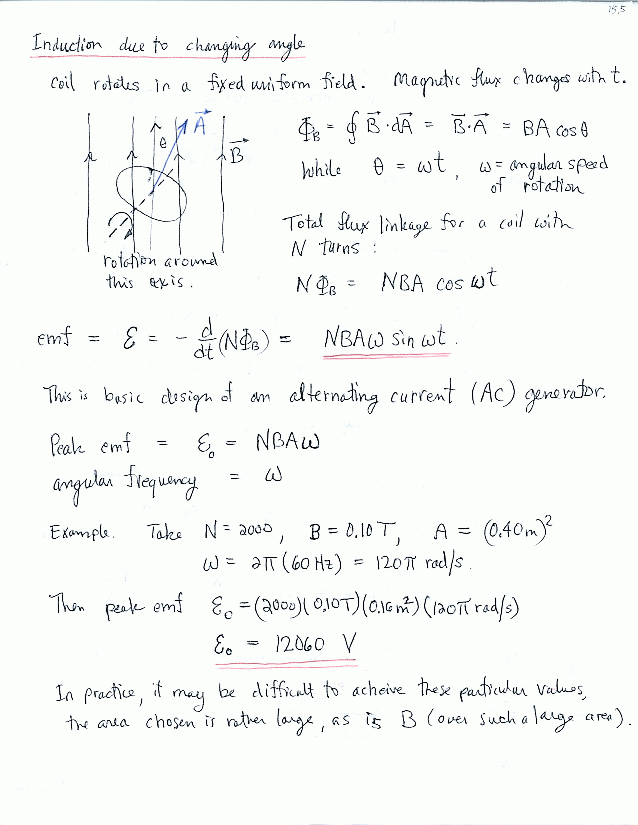 19.5
Induction due to changing angle
Coil rotates in a fixed uniform field. Magnetic flux changes with t.
θ A⃗ B⃗
Φ_B = ∮ B⃗·dA⃗ = B⃗·A⃗ = BA cos θ
While θ = ωt, ω = angular speed
of rotation
Total flux linkage for a coil with
N turns :
rotation around
this axis.
NΦ_B = NBA cos ωt
emf = ℰ = - d/dt (NΦ_B) = NBAω sin ωt.
This is basic design of an alternating current (AC) generator.
Peak emf = ℰ₀ = NBAω
angular frequency = ω
Example. Take N = 2000, B = 0.10 T, A = (0.40 m)²
ω = 2π (60 Hz) = 120π rad/s.
Then peak emf ℰ₀ = (2000)(0.10T)(0.16 m²)(120π rad/s)
ℰ₀ = 12060 V
In practice, it may be difficult to acheive these particular values,
the area chosen is rather large, as is B (over such a large area).